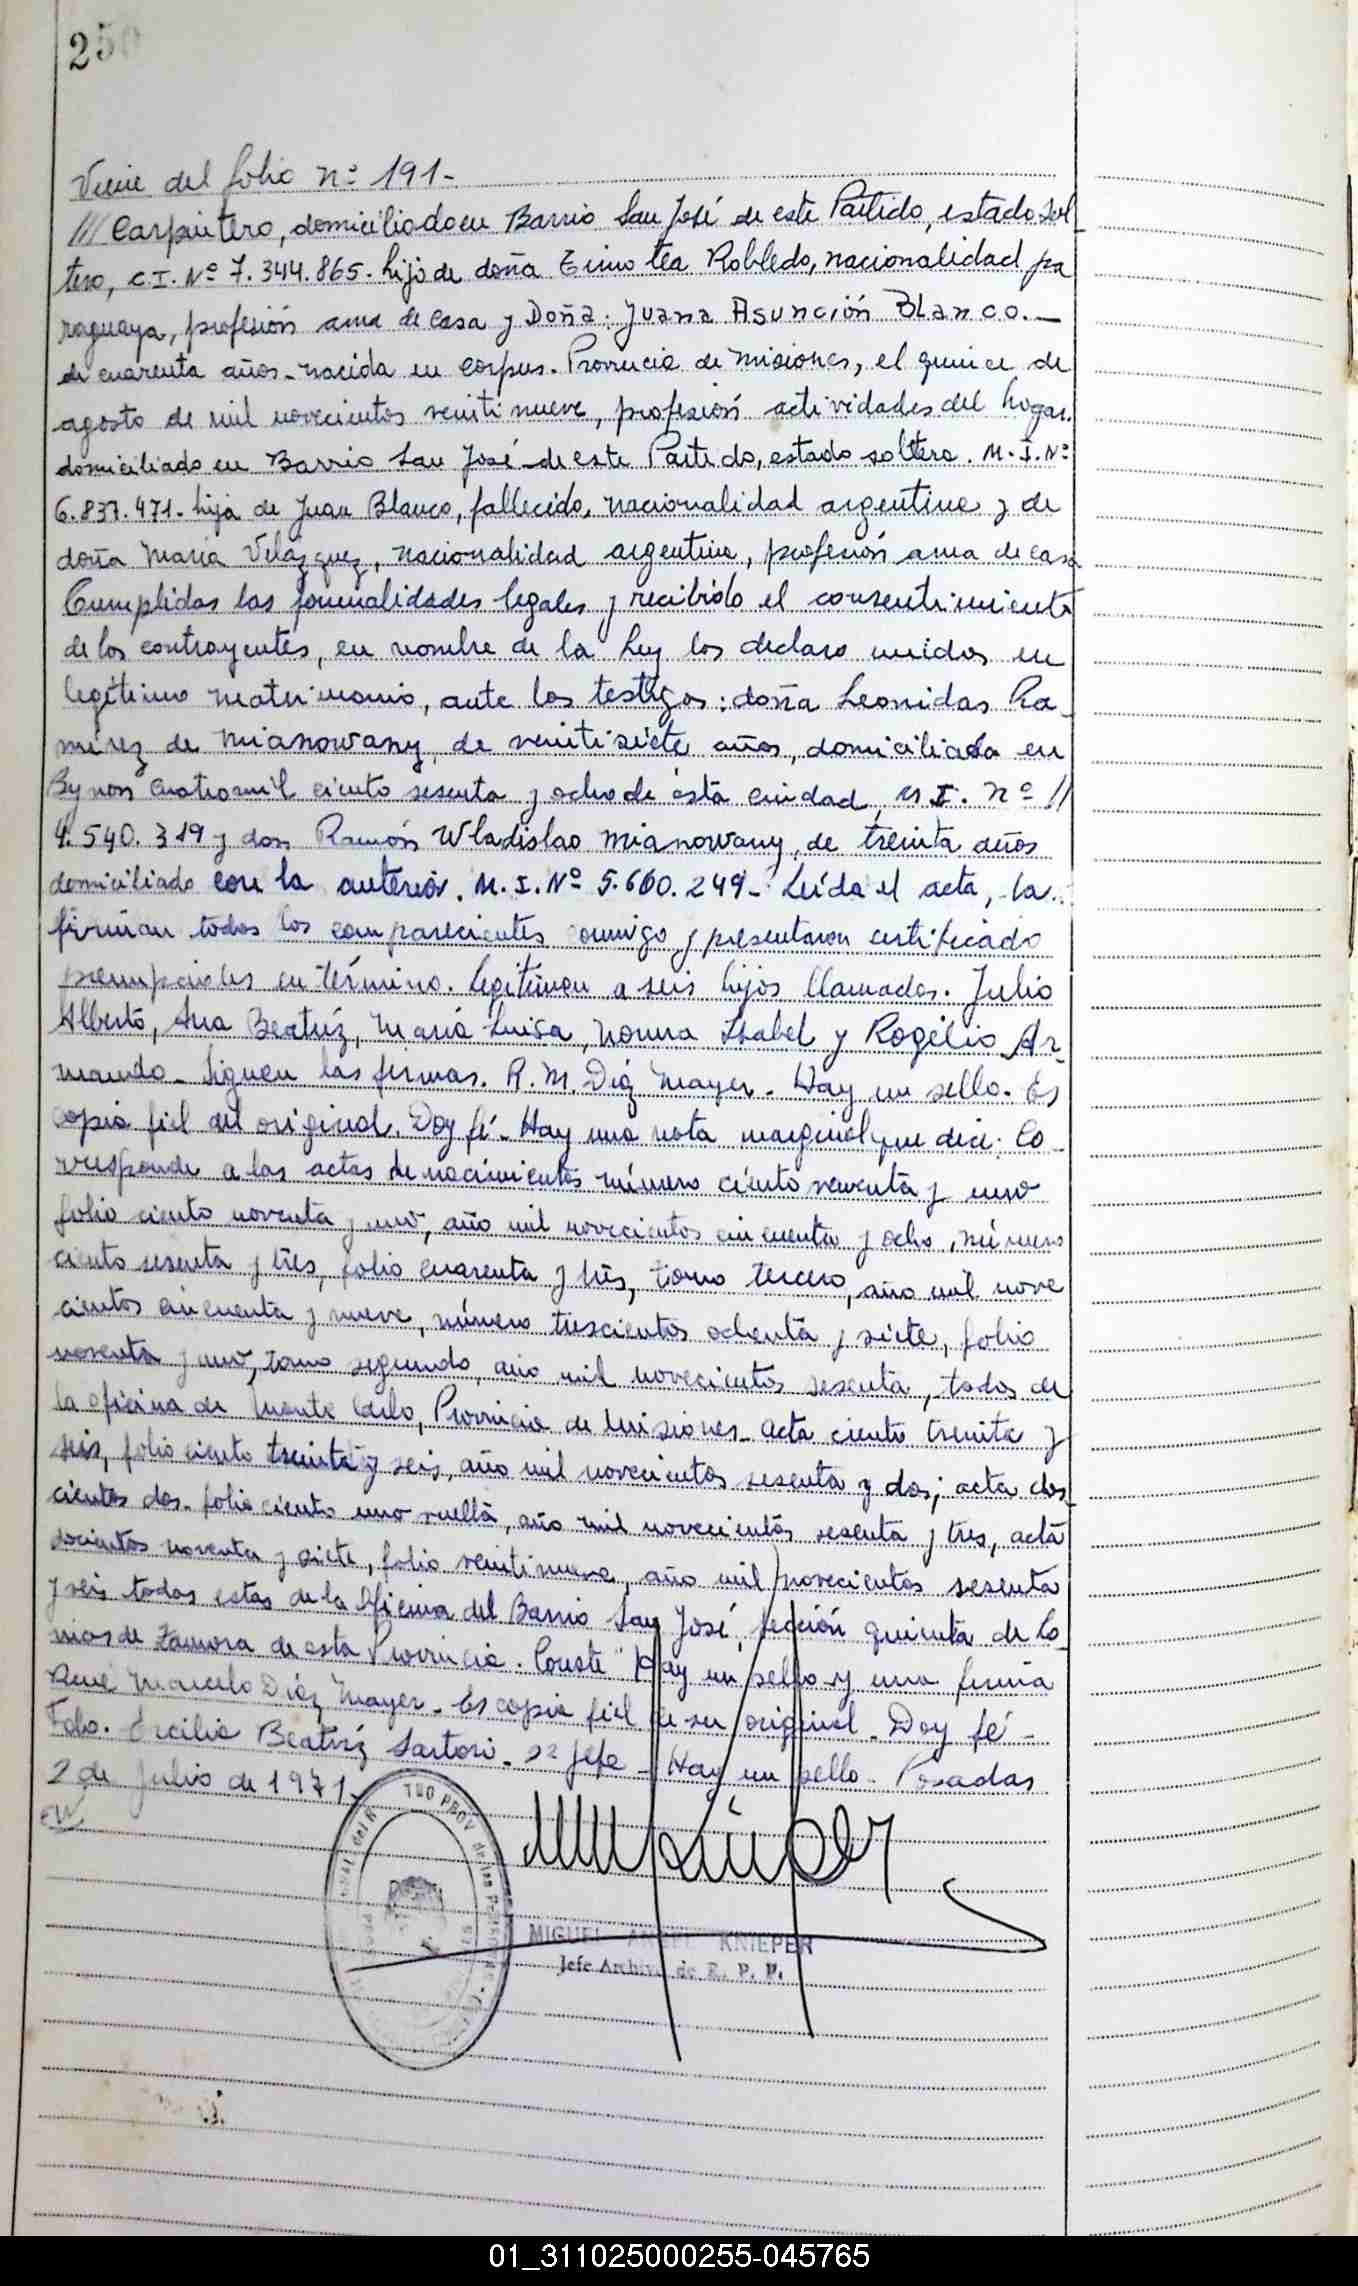 250
Viene del folio nº 191-
/// Carpintero, domiciliado en Barrio San José de este Partido, estado sol
tero, C.I. Nº 7.344.865. hijo de doña Timotea Robledo, nacionalidad pa
raguaya, profesión ama de casa y Doña: Juana Asunción Blanco.—
de cuarenta años - nacida en Corpus. Provincia de Misiones, el quince de
agosto de mil novecientos veintinueve, profesión actividades del hogar.
domiciliado en Barrio San José de este Partido, estado soltera. M.I. Nº
6.837.471. hija de Juan Blanco, fallecido, nacionalidad argentina y de
doña María Velazquez, nacionalidad argentina, profesión ama de casa
Cumplidas las formalidades legales y recibido el consentimiento
de los contrayentes, en nombre de la Ley los declaro unidos en
legítimo matrimonio, ante los testigos: doña Leonidas Ra-
mirez de Mianowany, de veintisiete años, domiciliada en
Bynon cuatromil ciento sesenta y ocho de ésta ciudad, M.I. Nº //
4.540.319 y don Ramón Wladislao Mianowany, de treinta años
domiciliado con la anterior. M.I. Nº 5.660.249- Leída el acta, la
firman todos los comparecientes conmigo y presentaron certificado
prenupciales en término. Legitiman a seis hijos llamados. Julio
Alberto, Ana Beatríz, María Luisa, Norma Isabel y Rogelio Ar-
mando - Siguen las firmas. R. M. Díaz Mayer - Hay un sello. Es
copia fiel del original. Doy fé - Hay una nota marginal que dice: Co
rresponde a las actas de nacimientos número ciento noventa y uno
folio ciento noventa y uno, año mil novecientos cincuenta y ocho, número
ciento sesenta y tres, folio cuarenta y tres, tomo tercero, año mil nove
cientos cincuenta y nueve, número trescientos ochenta y siete, folio
noventa y uno, tomo segundo, año mil novecientos sesenta, todos de
la oficina de Monte Carlo, Provincia de Misiones - acta ciento treinta y
seis, folio ciento treinta y seis, año mil novecientos sesenta y dos; acta dos
cientos dos - folio ciento uno vuelta, año mil novecientos sesenta y tres, acta
docientos noventa y siete, folio veintinueve, año mil novecientos sesenta
y seis todas estas de la Oficina del Barrio San José, sección quinta de Lo
mas de Zamora de esta Provincia. Conste" Hay un sello y una firma
René Marcelo Díaz Mayer - Es copia fiel de su original - Doy fé -
Fdo. Ercilia Beatríz Sartori - 2º Jefe - Hay un sello - Posadas
2 de Julio de 1971.
MIGUEL ANGEL KNIEPER
Jefe Archivo de R. P. P.
01_311025000255-045765